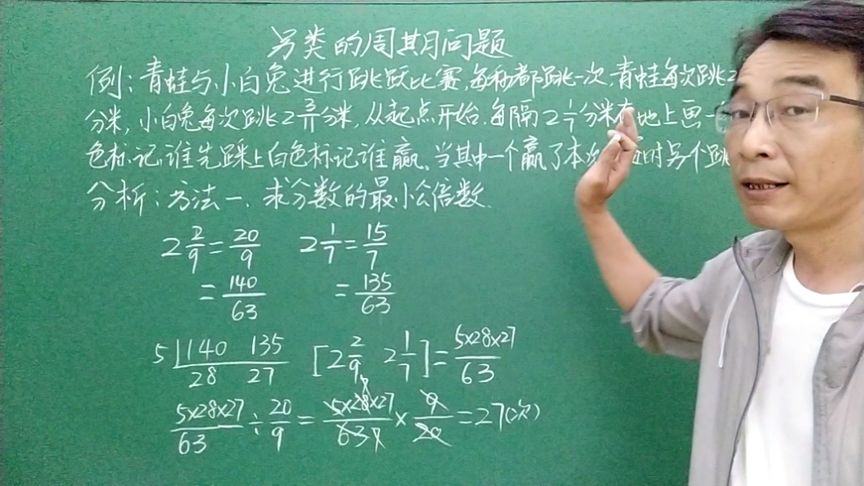 另类的周期问题
例:青蛙与小白兔进行跳跃比赛,每秒都跳一次,青蛙每次跳2
分米,小白兔每次跳2 3/11分米,从起点开始.每隔2 1/7分米在地上画一
色标记,谁先踩上白色标记谁赢.当其中一个赢了本次 时另个跳
分析:方法一.求分数的最小公倍数.
2 2/9=20/9 2 1/7=15/7
=140/63 =135/63
5 140 135 [2 2/9 2 1/7]=5×28×27/63
28 27
5×28×27/63÷20/9=5×28×27/63×9/20=27(次)